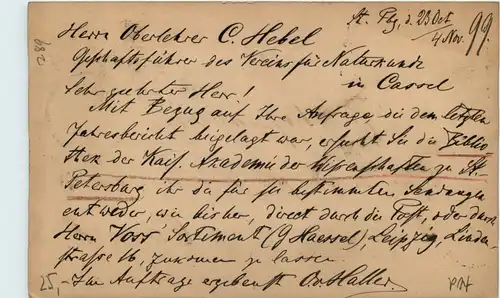 St. Pbg, d. 23 Oct.
4 Nov. 99.
289
Herrn Oberlehrer C. Hebel
Geschäftsführer des Vereins für Naturkunde
in Cassel
Sehr geehrter Herr!
Mit Bezug auf Ihre Anfrage, die dem letzten
Jahresbericht beigelegt war, ersucht Sie die Biblio
thek der Kais. Akademie der Wissenschaften zu St.
Petersburg ihr die für sie bestimmten Sendungen
entweder, wie bisher, direct durch die Post, oder durch
Herrn Voss' Sortiment (G Haessel) Leipzig, Linden
strasse 16, zukommen zu lassen.
25,- Im Auftrage ergebenst O. v. Haller.